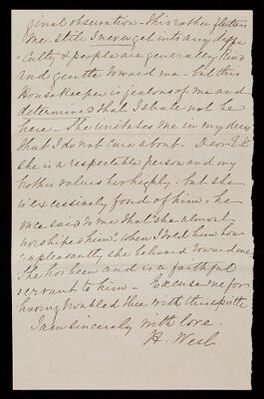 ginal observation - this rather flatters
me still I never get into any diffi
culty & people are generaley kind
and gentle toward me - but this
Housekeeper is jealous of me and
determined that I shall not be
here - She imitates me in my
that I do not care about - Dear
she is a respectable person and my
brother values her highly - but she
is excessively fond of him - he
once said to me that "she almost
worshiped him" when I told him how
unpleasantly she behaved toward me
She has been and is a faithful
servant to him - Excuse me for
having troubled thee with this
I am sincerely with love
H.